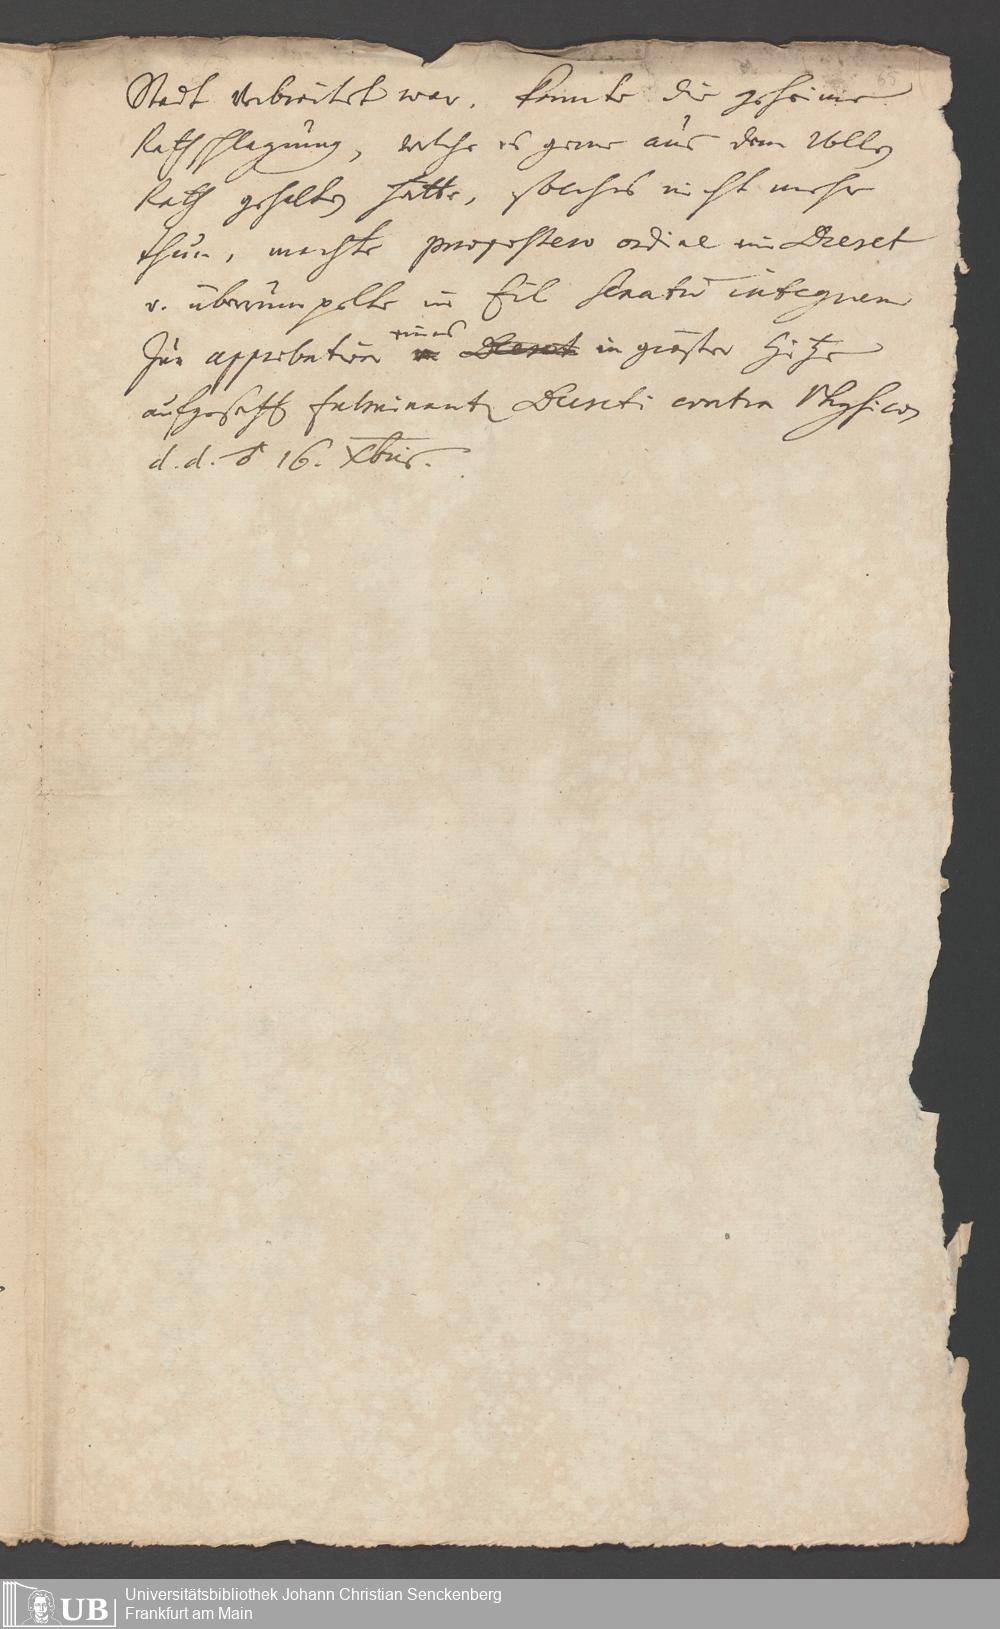 65
Stadt verbreitet war, konnte die geheime
Rathschlagung, welche es gerne aus dem Vollen
Rath gehalten hätte, solches nicht mehr
thun, machte ein Decret
v. überrumpelte in Eil Senatū integrum
zur approbation eines Decret in gröster Hitze
aufgesetzt fulminanten Decreti contra Physicos
d.d. ♂ 16. Xbris.
UB
Universitätsbibliothek Johann Christian Senckenberg
Frankfurt am Main